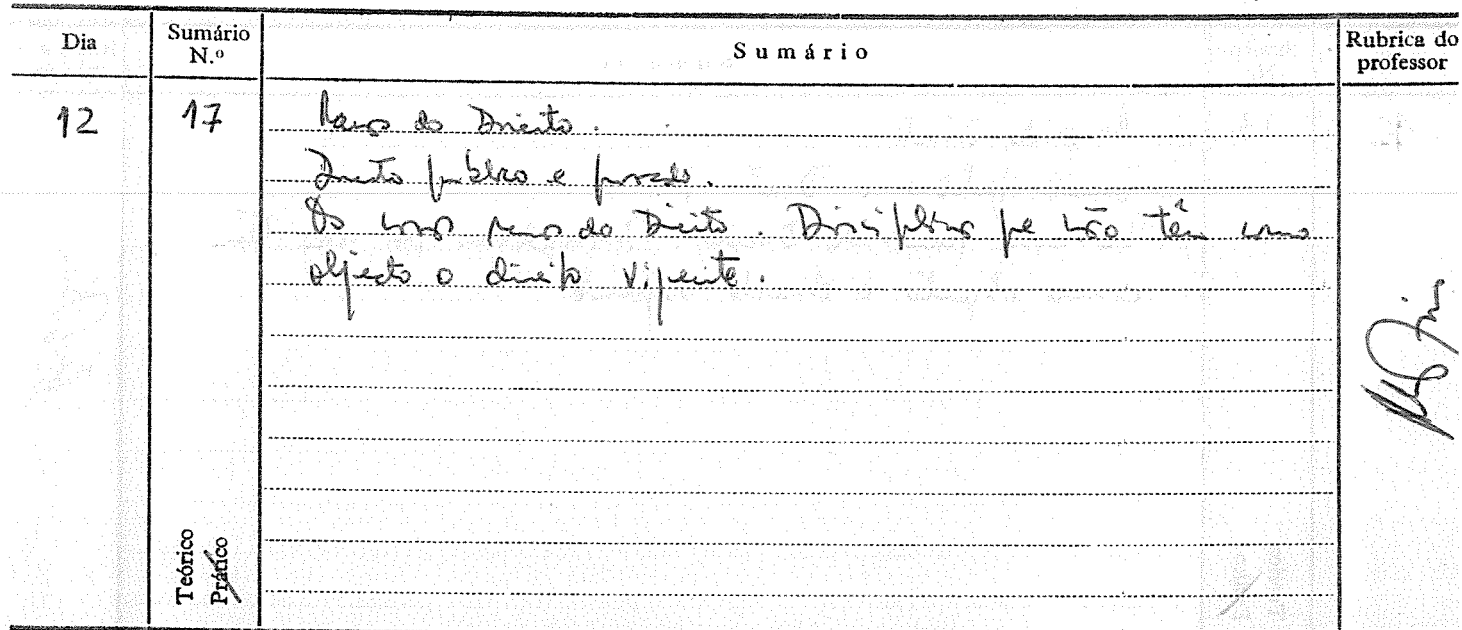 Dia
Sumário N.º
Sumário
Rubrica do professor
12
17
Ramos do Direito.
Direito público e privado.
Os ramos do Direito. Disciplinas que não têm como
objecto o direito vigente.
Teórico
Prático